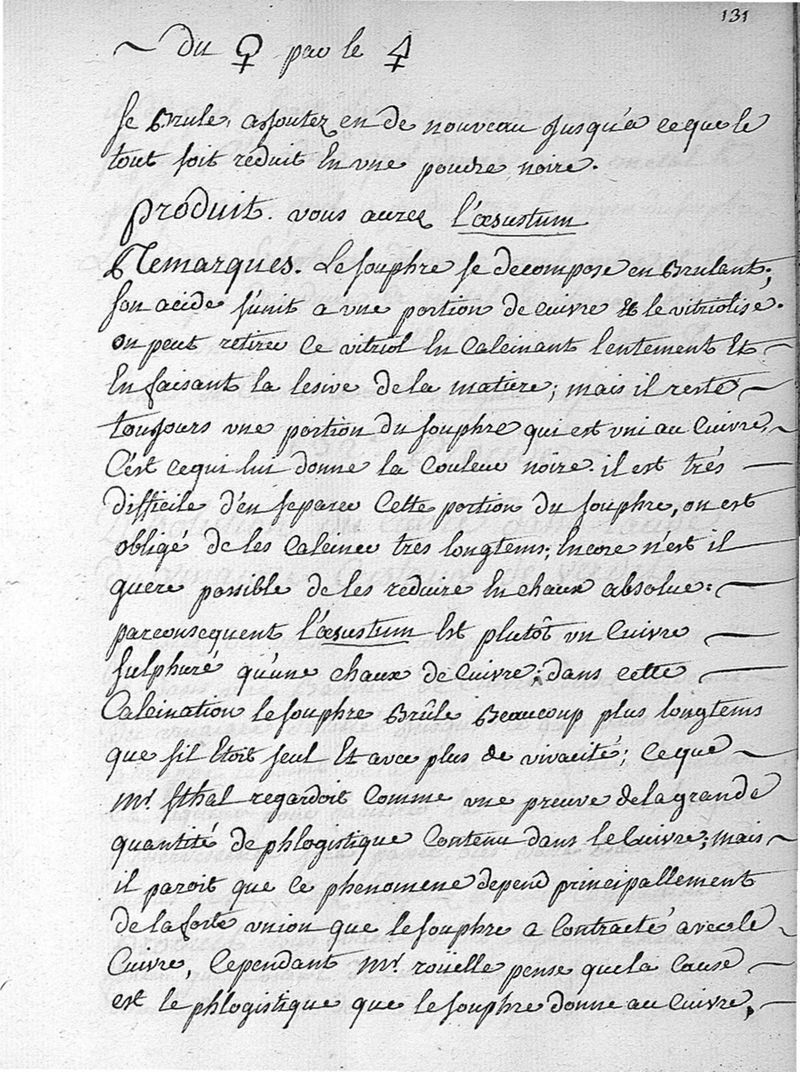 131
~ Du ♀ par le 🜍
se Brule, ajoutez en de nouveau jusqu'a ce que le
tout soit réduit En vne poudre noire.
Produit. vous aurez l'œsustum
Remarques. Le souphre se decompose en Brulant;
son acide s'unit a vne portion de cuivre & le vitriolise.
on peut retirer Ce vitriol En Calcinant lentement Et
En faisant la lesive de la matiere; mais il reste
toujours vne portion du souphre qui est vni au Cuivre,
C'est ce qui lui donne la Couleur noire. il est trés
difficile d'en separer Cette portion du souphre, on est
obligé de les Calciner trés longtems; Encore n'est il
guere possible de les reduire En chaux absolue:
par consequent l'œsustum Est plutôt vn Cuivre
sulphuré qu'une chaux de Cuivre; dans cette
Calcination le souphre Brûle Beaucoup plus longtems
que s'il Etoit seul Et avec plus de vivacité; Ce que
Mr. Sthal regardoit Comme vne preuve de la grande
quantité de phlogistique Contenu dans le Cuivre; mais
il paroit que Ce phenomene depend principallement
de la forte vnion que le souphre a Contracté avec le
Cuivre, Cependant Mr. roüelle pense que la Cause
est le phlogistique que le souphre donne au Cuivre,